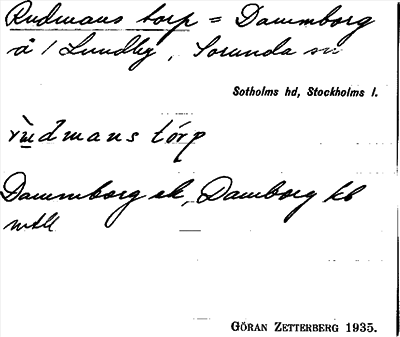 Rudmans torp = Dammborg
å / Lundby, Sorunda sn
Sotholms hd, Stockholms l.
rùdmans tórp
Dammborg ek, Damborg kb
mtl
GÖRAN ZETTERBERG 1935.